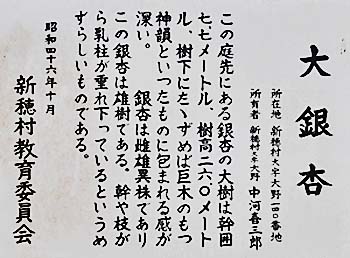 大銀杏
所在地 新穂村大字大野一四〇番地
所有者 新穂村大字大野 中河春三郎
この庭先にある銀杏の大樹は幹囲
七.七メートル、樹高二六.〇メート
ル、樹下にたゝずめば巨木のもつ
神韻といったものに包まれる感が
深い。 銀杏は雌雄異株であり
この銀杏は雄樹である。幹や枝か
ら乳柱が垂れ下っているというめ
ずらしいものである。
昭和四十六年十月
新穂村教育委員会